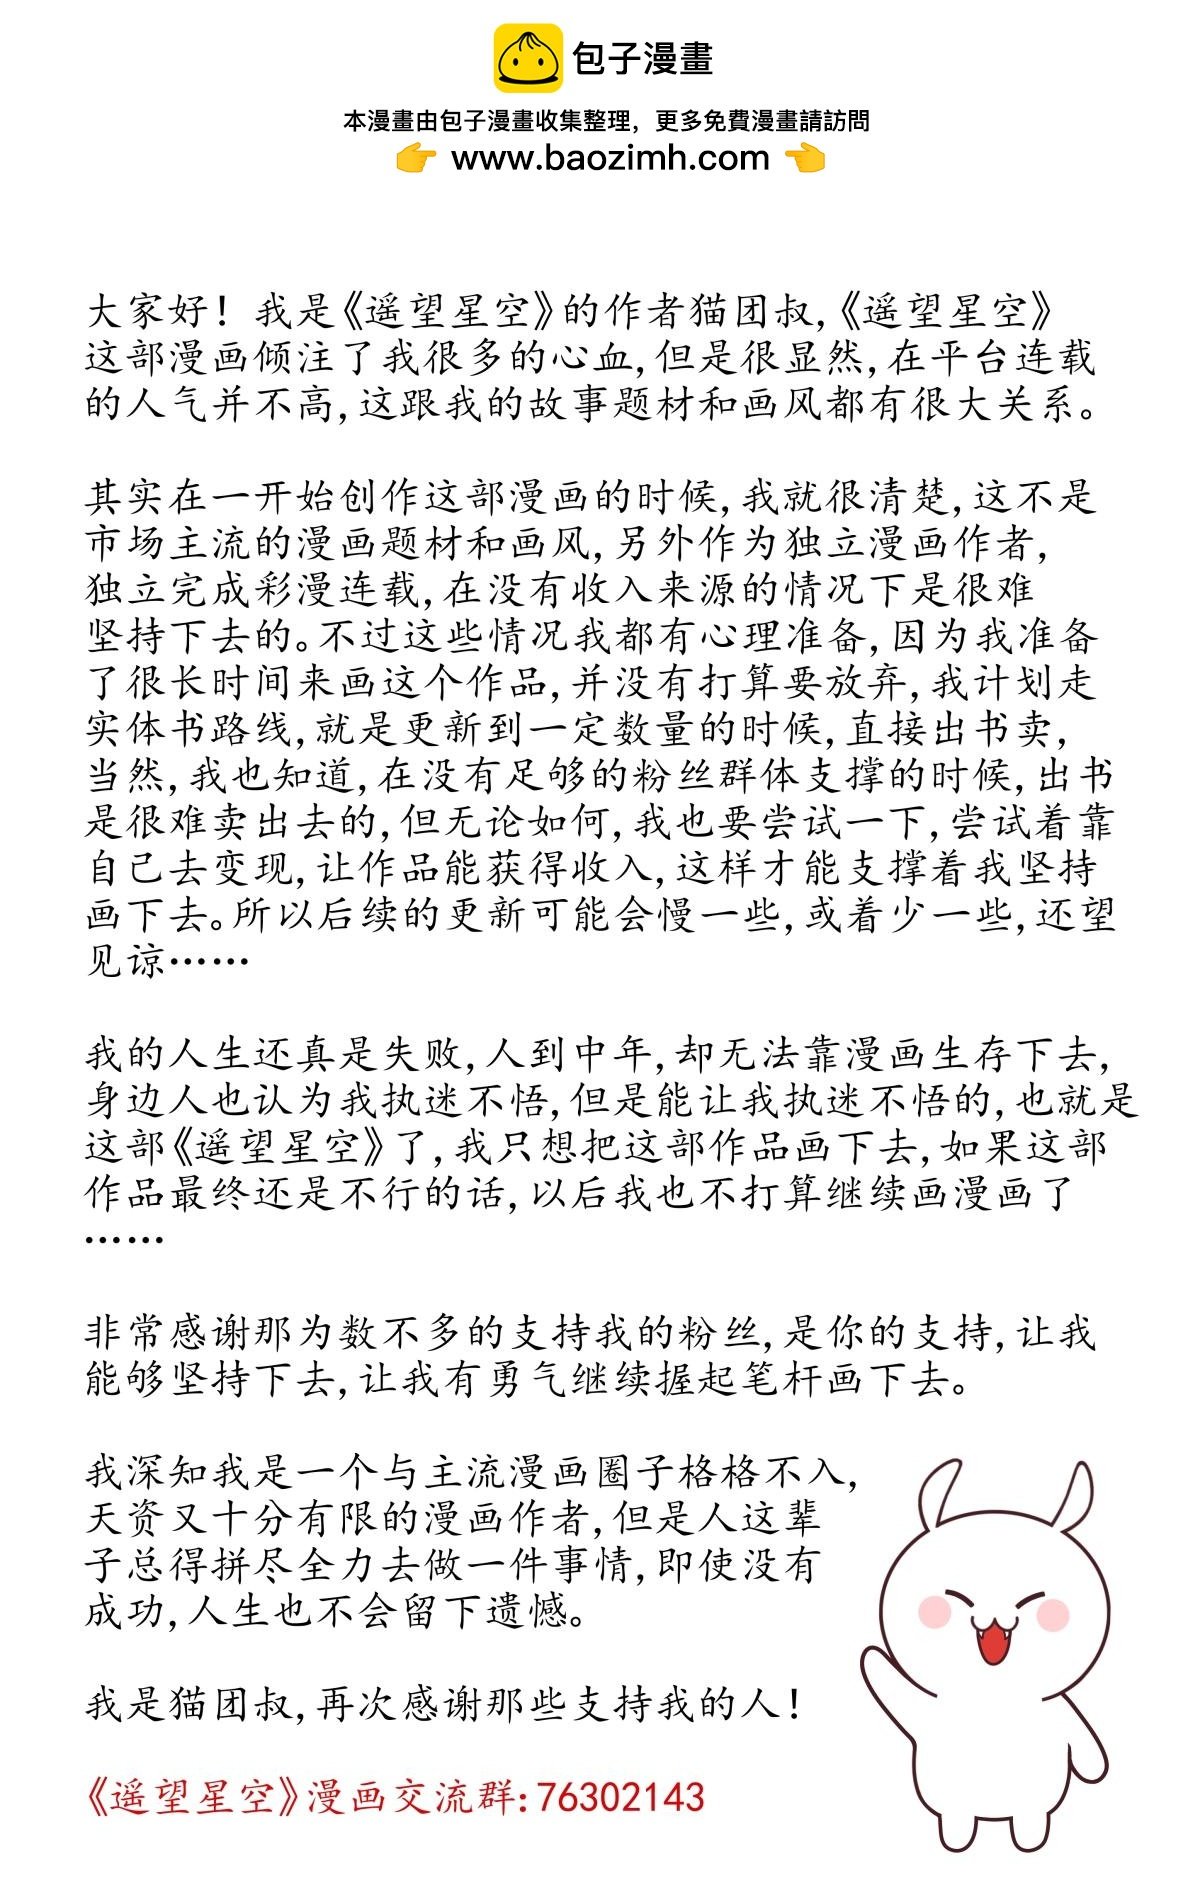 包子漫畫
本漫畫由包子漫畫收集整理，更多免費漫畫請訪問
👉 www.baozimh.com 👈
大家好！我是《遥望星空》的作者猫团叔，《遥望星空》
这部漫画倾注了我很多的心血，但是很显然，在平台连载
的人气并不高，这跟我的故事题材和画风都有很大关系。
其实在一开始创作这部漫画的时候，我就很清楚，这不是
市场主流的漫画题材和画风，另外作为独立漫画作者，
独立完成彩漫连载，在没有收入来源的情况下是很难
坚持下去的。不过这些情况我都有心理准备，因为我准备
了很长时间来画这个作品，并没有打算要放弃，我计划走
实体书路线，就是更新到一定数量的时候，直接出书卖，
当然，我也知道，在没有足够的粉丝群体支撑的时候，出书
是很难卖出去的，但无论如何，我也要尝试一下，尝试着靠
自己去变现，让作品能获得收入，这样才能支撑着我坚持
画下去。所以后续的更新可能会慢一些，或着少一些，还望
见谅……
我的人生还真是失败，人到中年，却无法靠漫画生存下去，
身边人也认为我执迷不悟，但是能让我执迷不悟的，也就是
这部《遥望星空》了，我只想把这部作品画下去，如果这部
作品最终还是不行的话，以后我也不打算继续画漫画了
……
非常感谢那为数不多的支持我的粉丝，是你的支持，让我
能够坚持下去，让我有勇气继续握起笔杆画下去。
我深知我是一个与主流漫画圈子格格不入，
天资又十分有限的漫画作者，但是人这辈
子总得拼尽全力去做一件事情，即使没有
成功，人生也不会留下遗憾。
我是猫团叔，再次感谢那些支持我的人！
《遥望星空》漫画交流群：76302143